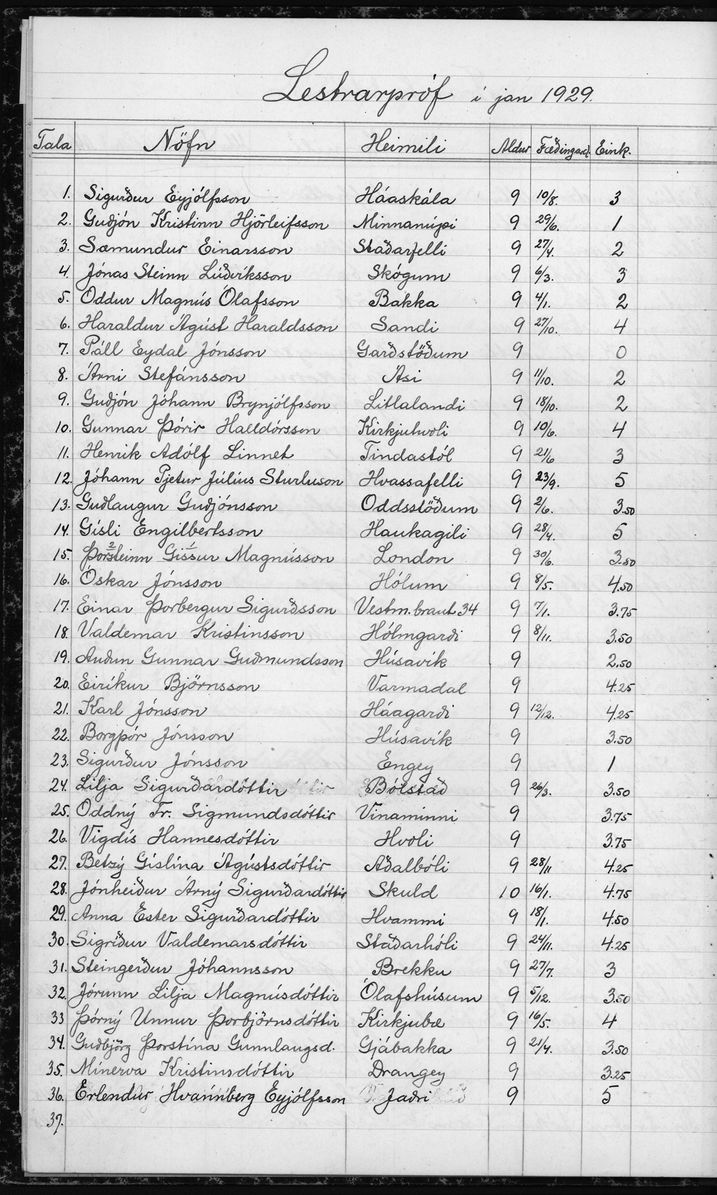 Lestrarpróf í jan 1929.
Tala Nöfn Heimili Aldur Fæðingard. Eink.
1. Sigurður Eyjólfsson Háaskála 9 10/8. 3
2. Guðjón Kristinn Hjörleifsson Minnanúpi 9 29/6. 1
3. Sæmundur Einarsson Staðarfelli 9 27/4. 2
4. Jónas Steinn Lúðvíksson Skógum 9 6/3. 3
5. Oddur Magnús Ólafsson Bakka 9 4/1. 2
6. Haraldur Ágúst Haraldsson Sandi 9 27/10. 4
7. Páll Eydal Jónsson Garðstöðum 9 0
8. Árni Stefánsson Ási 9 11/10. 2
9. Guðjón Jóhann Brynjólfsson Litlalandi 9 18/10. 2
10. Gunnar Þórir Halldórsson Kirkjuhvoli 9 10/6. 4
11. Henrik Adólf Linnet Tindastól 9 21/6 3
12. Jóhann Pjetur Júlíus Sturluson Hvassafelli 9 23/9. 5
13. Guðlaugur Guðjónsson Oddsstöðum 9 2/6. 3.50
14. Gísli Engilbertsson Haukagili 9 28/4. 5
15. Þorsteinn Gissur Magnússon London 9 30/6. 3.50
16. Óskar Jónsson Hólum 9 8/5. 4.50
17. Einar Þorbergur Sigurðsson Vestm.braut 34 9 7/1. 3.75
18. Valdemar Kristinsson Hólmgarði 9 8/11. 3.50
19. Auðun Gunnar Guðmundsson Húsavík 9 2.50
20. Eiríkur Björnsson Varmadal 9 4.25
21. Karl Jónsson Háagarði 9 12/12. 4.25
22. Borgþór Jónsson Húsavík 9 3.50
23. Sigurður Jónsson Engey 9 1
24. Lilja Sigurðardóttir Bólstað 9 26/3. 3.50
25. Oddný Fr. Sigmundsdóttir Vinaminni 9 3.75
26. Vigdís Hannesdóttir Hvoli 9 3.75
27. Betzý Gíslína Ágústsdóttir Aðalbóli 9 28/11 4.25
28. Jónheiður Árný Sigurðardóttir Skuld 10 16/1. 4.75
29. Anna Ester Sigurðardóttir Hvammi 9 18/1. 4.50
30. Sigríður Valdemarsdóttir Staðarhóli 9 24/11. 4.25
31. Steingerður Jóhannsson Brekku 9 27/7. 3
32. Jórunn Lilja Magnúsdóttir Ólafshúsum 9 5/12. 3.50
33 Þórný Unnur Þorbjörnsdóttir Kirkjubæ 9 16/5. 4
34. Guðbjörg Þorstína Gunnlaugsd. Gjábakka 9 21/4. 3.50
35. Mínerva Kristinsdóttir Drangey 9 3.25
36. Erlendur Hvannberg Eyjólfsson Jaðri 9 5
37.